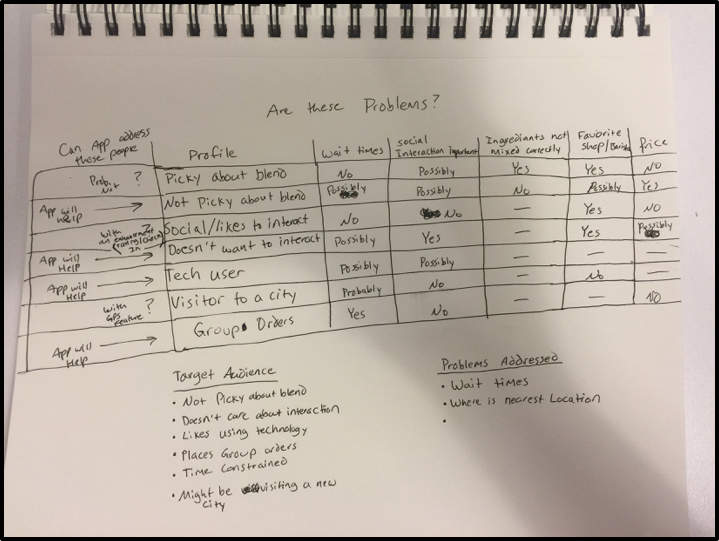 Are these Problems?
Can App address these people Profile wait times social Interaction Important Ingrediants not mixed correctly Favorite Shop/Barista Price
Prob. Not ? Picky about blend No Possibly Yes Yes No
App will Help → Not Picky about blend Possibly Possibly No Possibly Yes
With an enhancement ? Social/likes to interact No No — Yes No
App will Help → Doesn't want to interact Possibly Yes — Yes Possibly
App will Help → Tech user Possibly Possibly — — —
With GPS feature ? Visitor to a city Probably No — No —
App will Help → Group Orders Yes No — — No
Target Audience
• Not Picky about blend
• Doesn't care about interaction
• Likes using technology
• Places Group orders
• Time Constrained
• Might be visiting a new
city
Problems Addressed
• Wait times
• Where is nearest Location
•